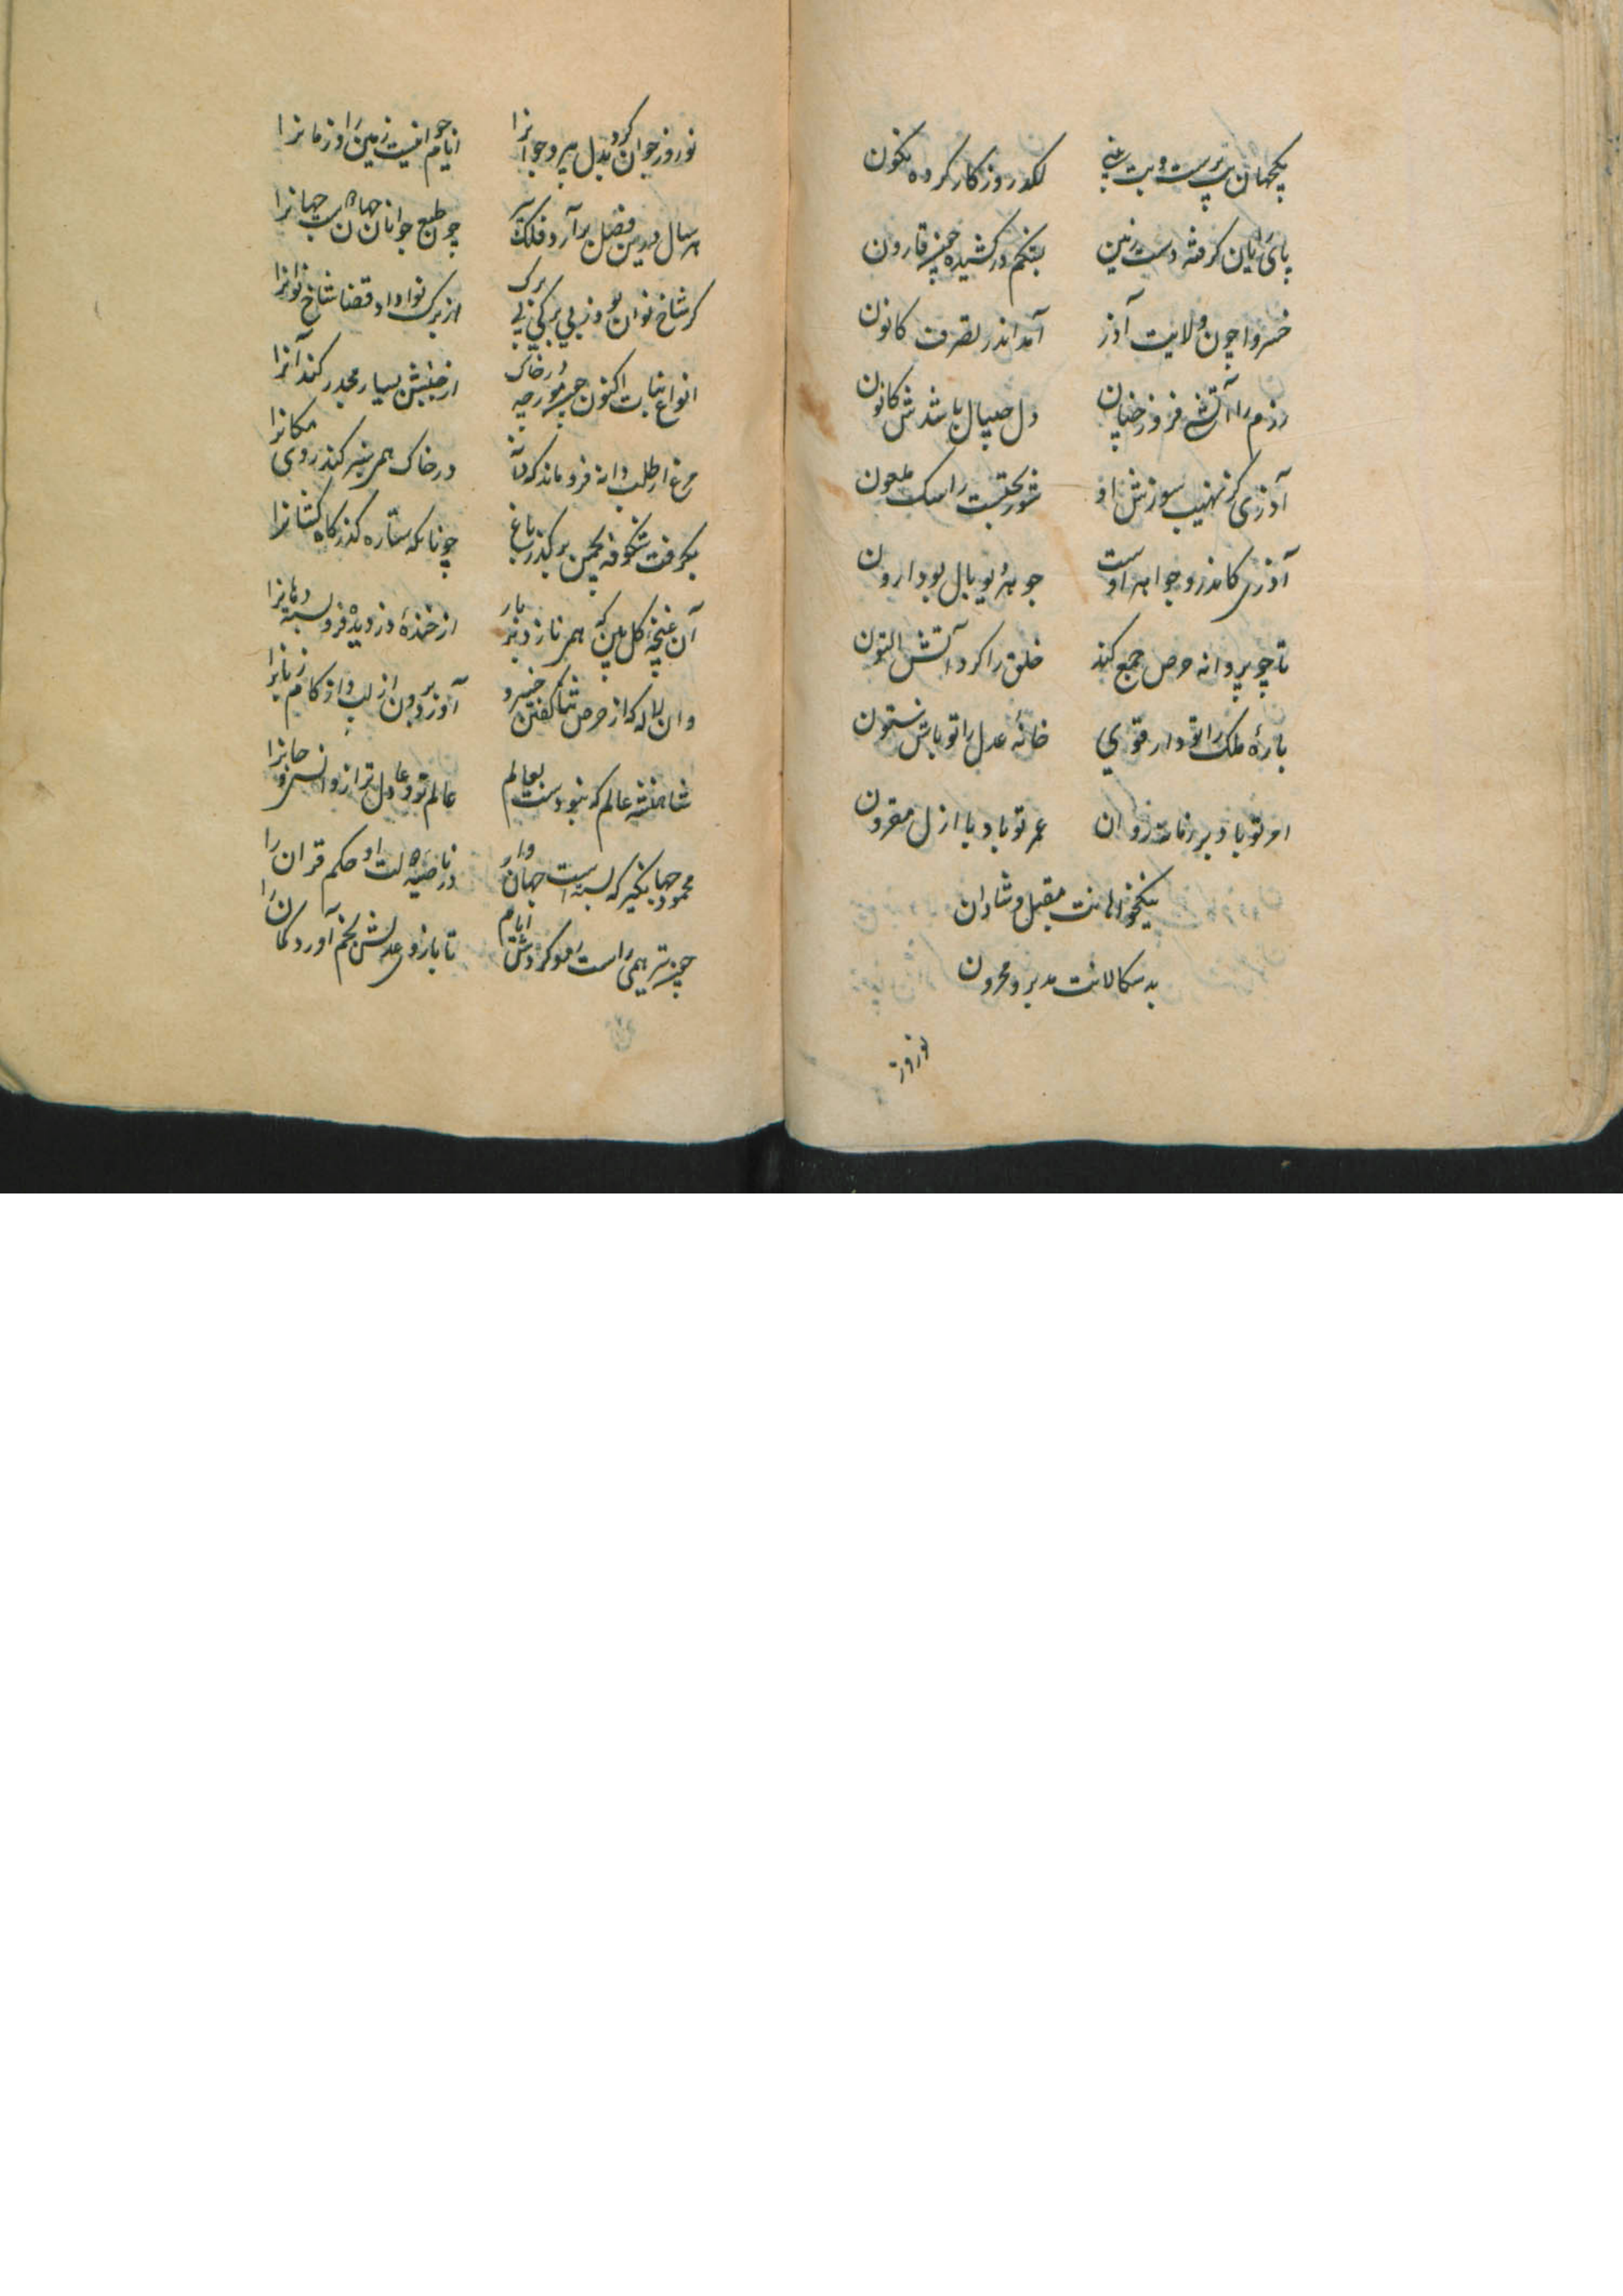 یکجهان بت پرست و بت شکنی لکد روزکار کرده نکون
پای ایان کرفته دست زمین بشکم درکشیده چون قارون
خسروا چون ولایت آذر آمد اندر تصرف کانون
رزم را آتشی فروز چنان دل جیپال باشدش کانون
آذری کز نهیب سوزش او شوربختیست را سک ملعون
آذری کاندرو جواهر اوست
تا چو پروانه حرص جمع کند خلق را کرد آتش التون
بارهٔ ملک را تو دار قوی خانهٔ عدل را تو باش ستون
امر تو باد بر زمانه روان عمر تو باد با ازل مقرون
نیکخواهانت مقبل و شادان
بدسکالانت مدبر و محزون
نوروز
نوروز جوان کرد بدل پیر و جوانرا ایام جوانیست زمین را و زمانرا
هر سال درین فصل برآرد فلک چون طبع جوانان جهان جهانرا
کر شاخ نوان بود ز بی برکی و بی برک از برک نوا داد قضا شاخ نوانرا
انواع نبات اکنون چون مورچه در خاک از جنبش بسیار مجدر کند آنرا
مرغ از طلب دانه فرو ماند که دانه در خاک همی سبز کند روی مکانرا
بکرفت شکوفه بچمن بر کذر باغ چونانکه ستاره کذر کاه کشانرا
آن غنچهٔ کل بین که همی نازد بر بار از خندهٔ دزدیده فرو بسته دهانرا
وان لاله که از حرص ثنا کفتن خسرو آورد برون از لب و از کام زبانرا
شاهنشه عالم که نبودست بعالم عالم تر و عادل تر ازو انسی و جانرا
محمود جهانکیر که بستست جهان وار در ناصیهٔ دولت او حکم قران را
چون تیر همی راست رود کردش ایام تا بازوی عدلش بخم آورد کمان را